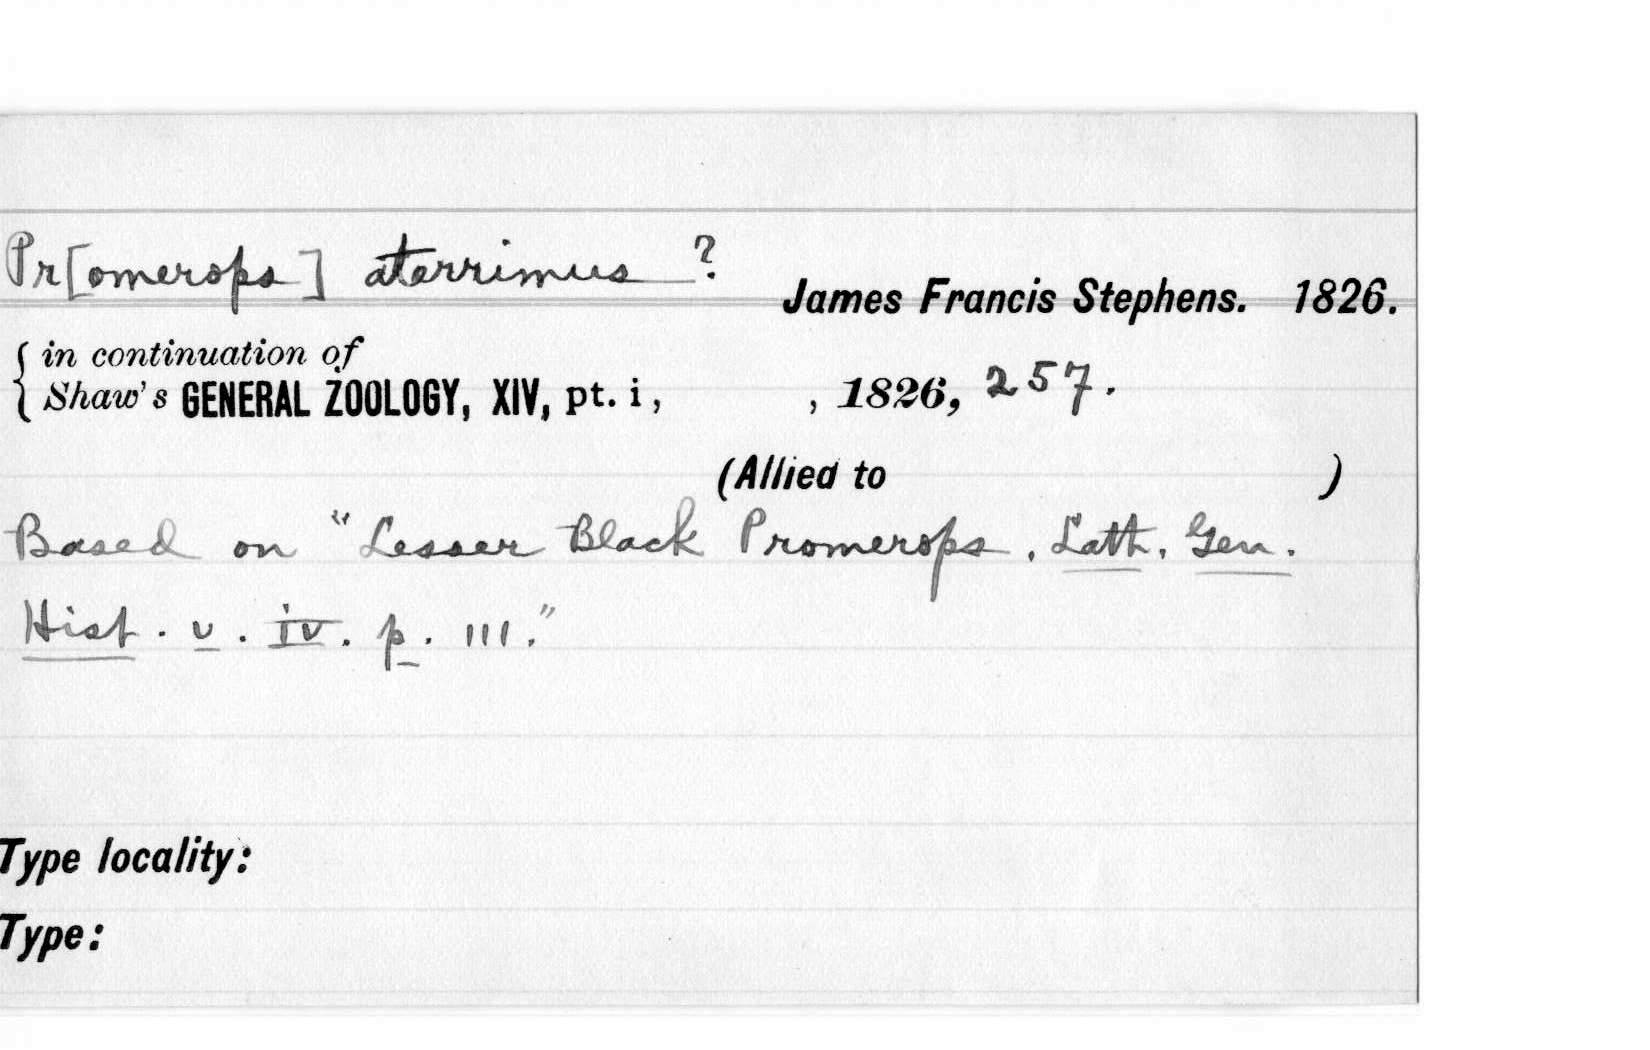 Pr[omerops] aterrimus ?
James Francis Stephens. 1826.
in continuation of
Shaw's GENERAL ZOOLOGY, XIV, pt. i, , 1826, 257.
(Allied to )
Based on "Lesser Black Promerops, Lath. Gen.
Hist. v. IV. p. 111."
Type locality:
Type: